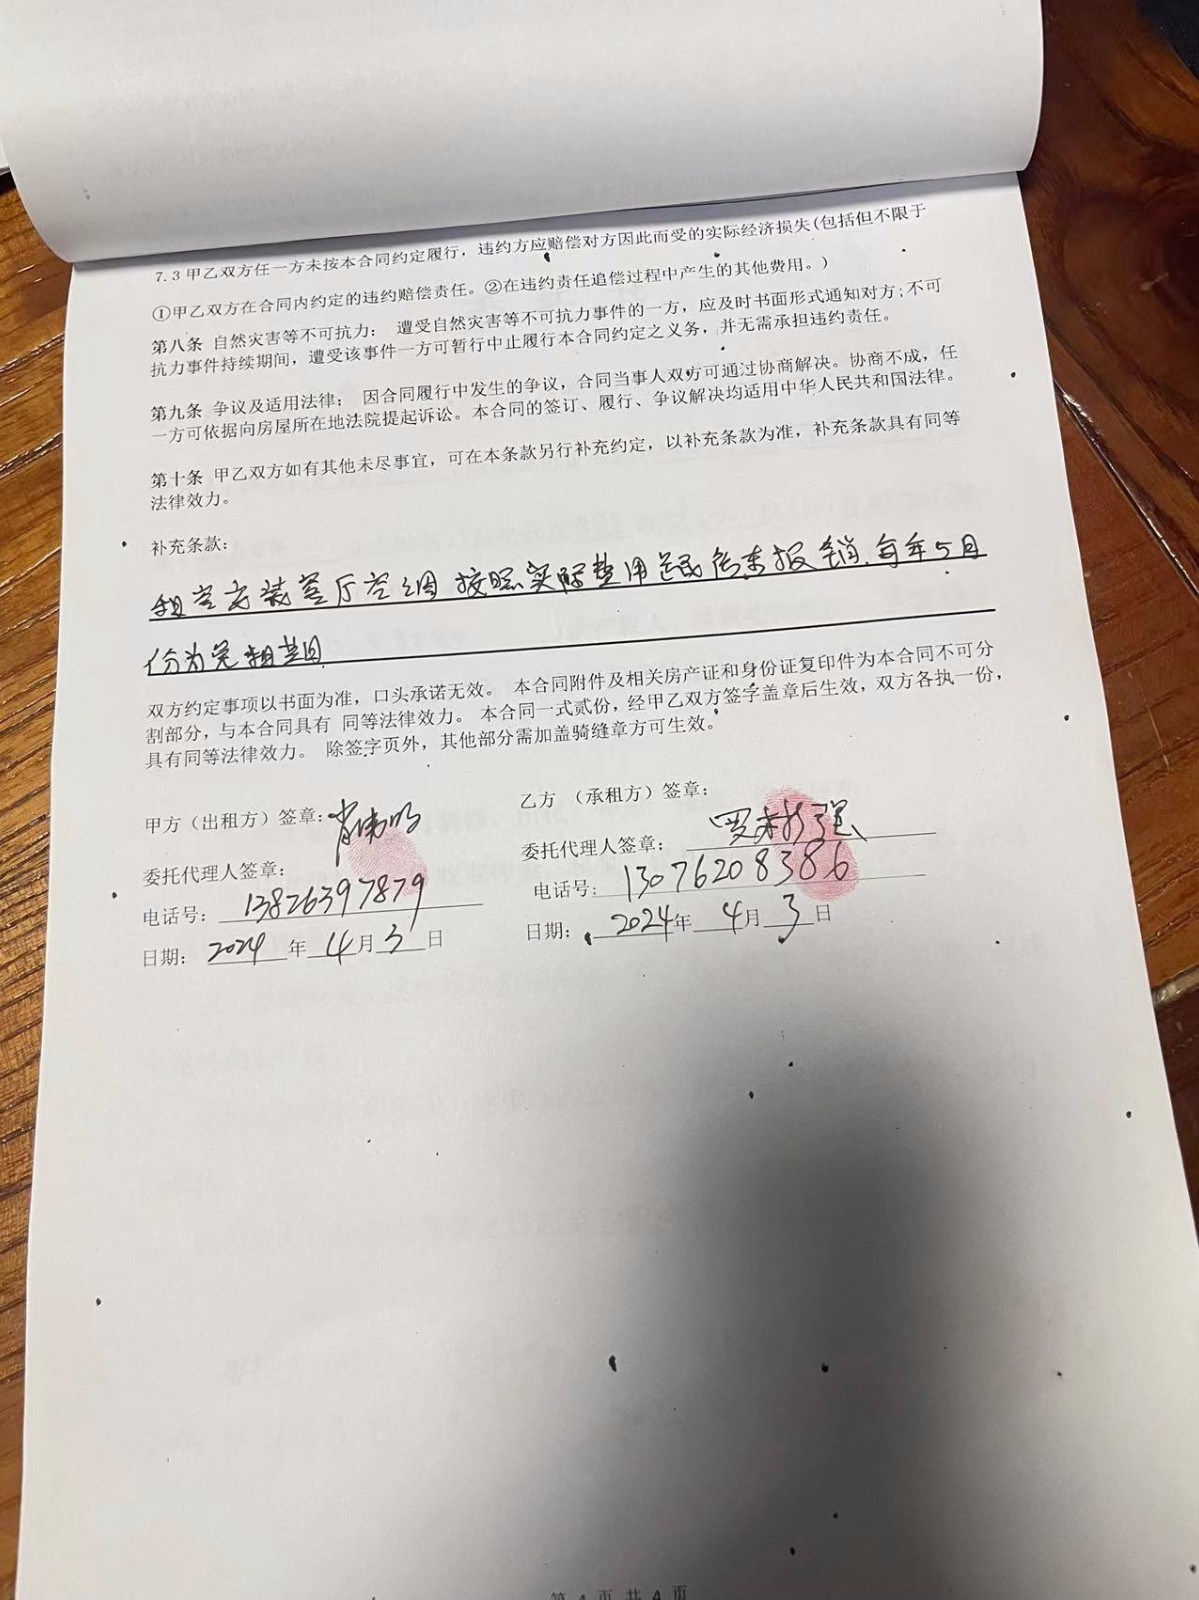 7.3 甲乙双方任一方未按本合同约定履行，违约方应赔偿对方因此而受的实际经济损失(包括但不限于
①甲乙双方在合同内约定的违约赔偿责任。②在违约责任追偿过程中产生的其他费用。)
第八条 自然灾害等不可抗力： 遭受自然灾害等不可抗力事件的一方，应及时书面形式通知对方;不可
抗力事件持续期间，遭受该事件一方可暂行中止履行本合同约定之义务，并无需承担违约责任。
第九条 争议及适用法律； 因合同履行中发生的争议，合同当事人双方可通过协商解决。协商不成，任
一方可依据向房屋所在地法院提起诉讼。本合同的签订、履行、争议解决均适用中华人民共和国法律。
第十条 甲乙双方如有其他未尽事宜，可在本条款另行补充约定，以补充条款为准，补充条款具有同等
法律效力。
补充条款:
租客安装客厅空调按照实际费用房东报销.每年5月
份为免租期
双方约定事项以书面为准，口头承诺无效。 本合同附件及相关房产证和身份证复印件为本合同不可分
割部分，与本合同具有 同等法律效力。 本合同一式贰份，经甲乙双方签字盖章后生效，双方各执一份，
具有同等法律效力。 除签字页外，其他部分需加盖骑缝章方可生效。
甲方（出租方）签章:
乙方 （承租方）签章:
委托代理人签章:
委托代理人签章:
电话号: 13826397879
电话号: 13076208386
日期: 2024 年 4月 3 日
日期: 2024年 4月 3 日
第 4 页 共 4 页